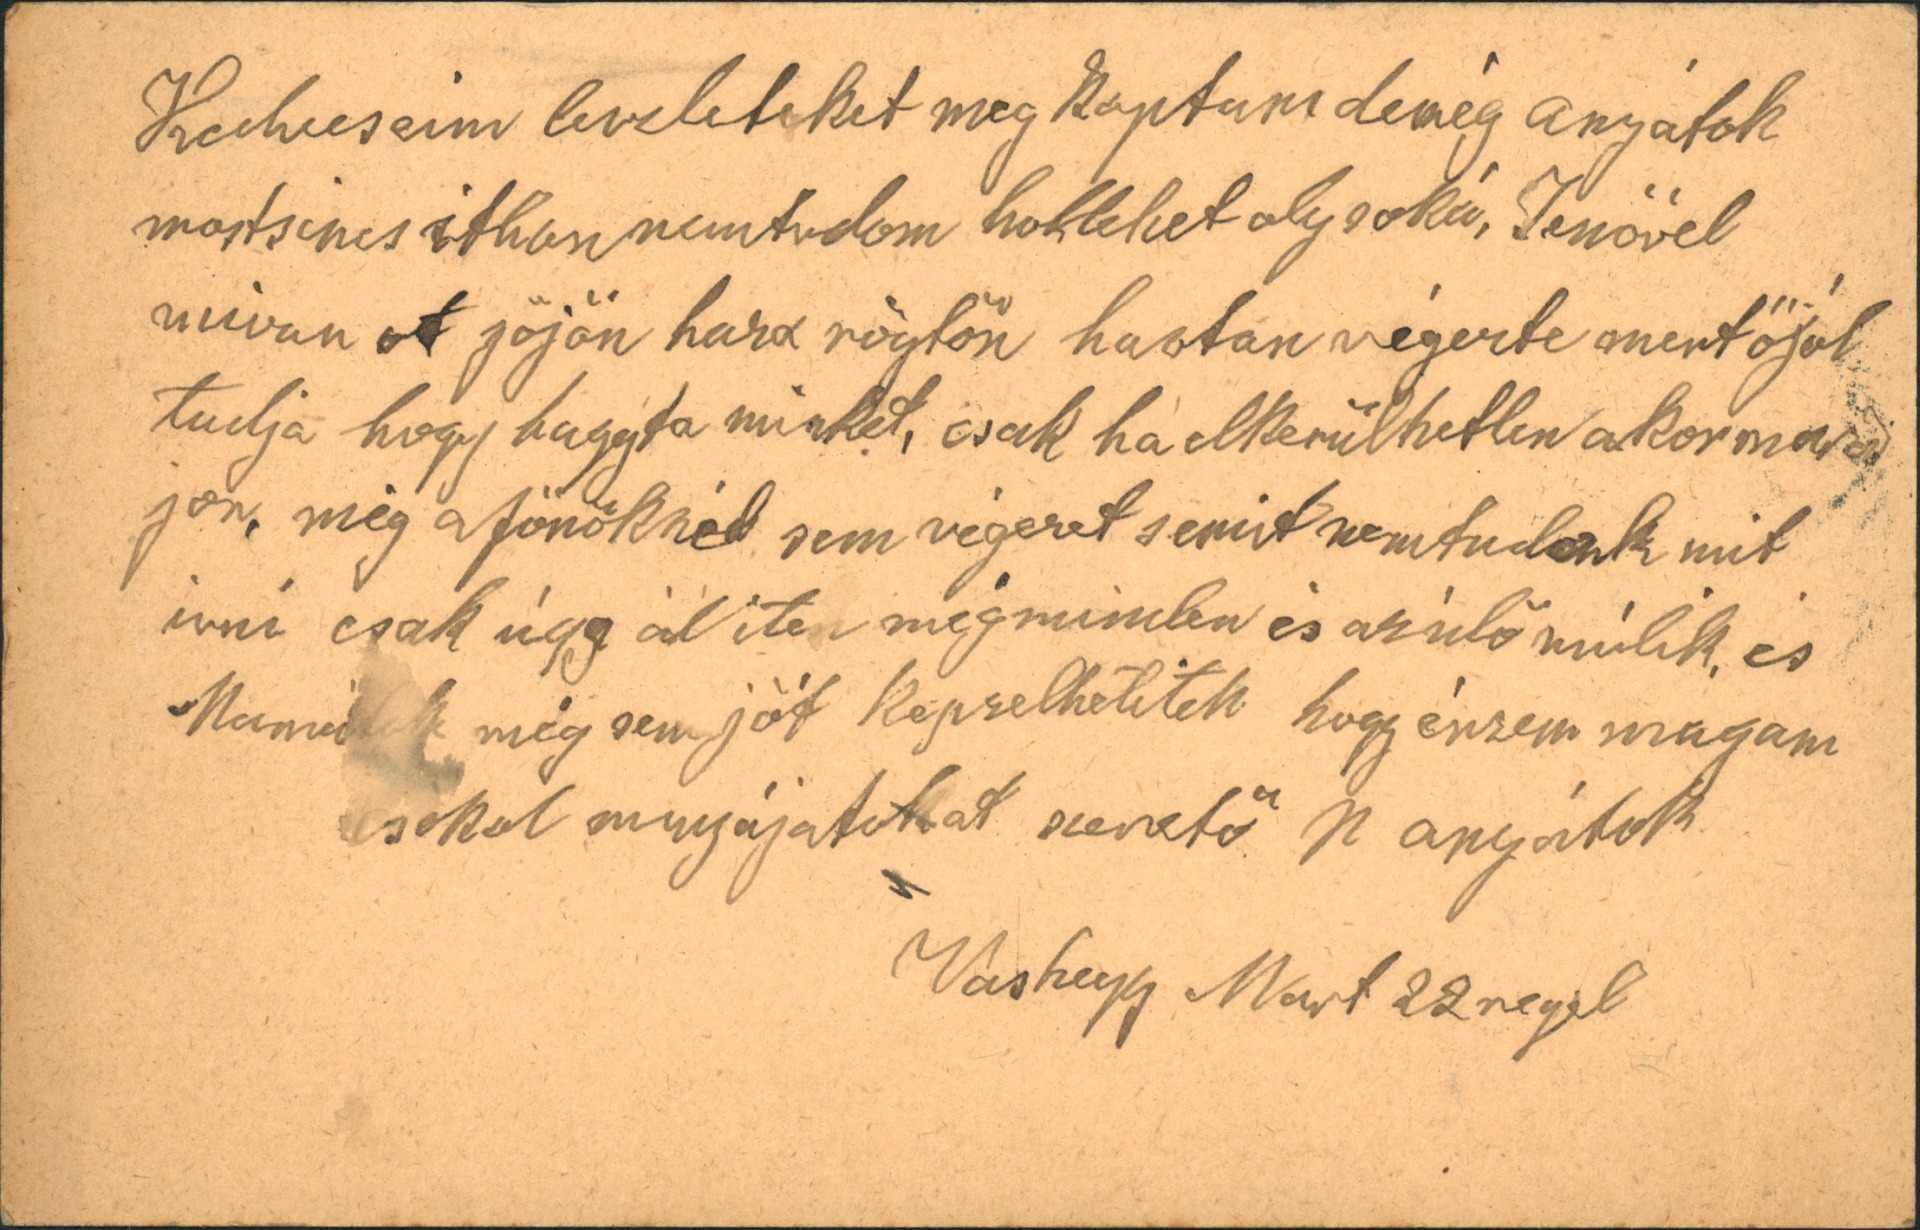 Kedveseim leveleteket meg kaptam demég anyátok
mostsincs ithon nemtudom hollehet oly soká, Jenövel
mivan ot jöjön haza rögtön hastan végezte mert öjol
tudja hogy hagyta minket, csak ha elkerülhetlen akor marad
jon, még a fönöknél sem végezet semit nemtudonk mit
irni csak úgy ál iten mégminden és azidö múlik, és
még sem jöt kepzelhetitek hogy érzem magam
csokol mnyájatokat szeretö N anyátok
Vashegy Mart 22 regel